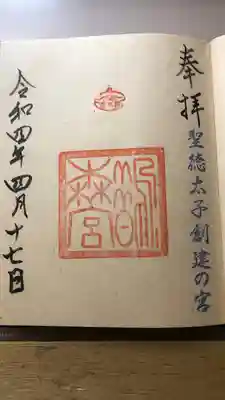 奉拝 聖徳太子創建の宮
鵲森宮
令和四年四月十七日